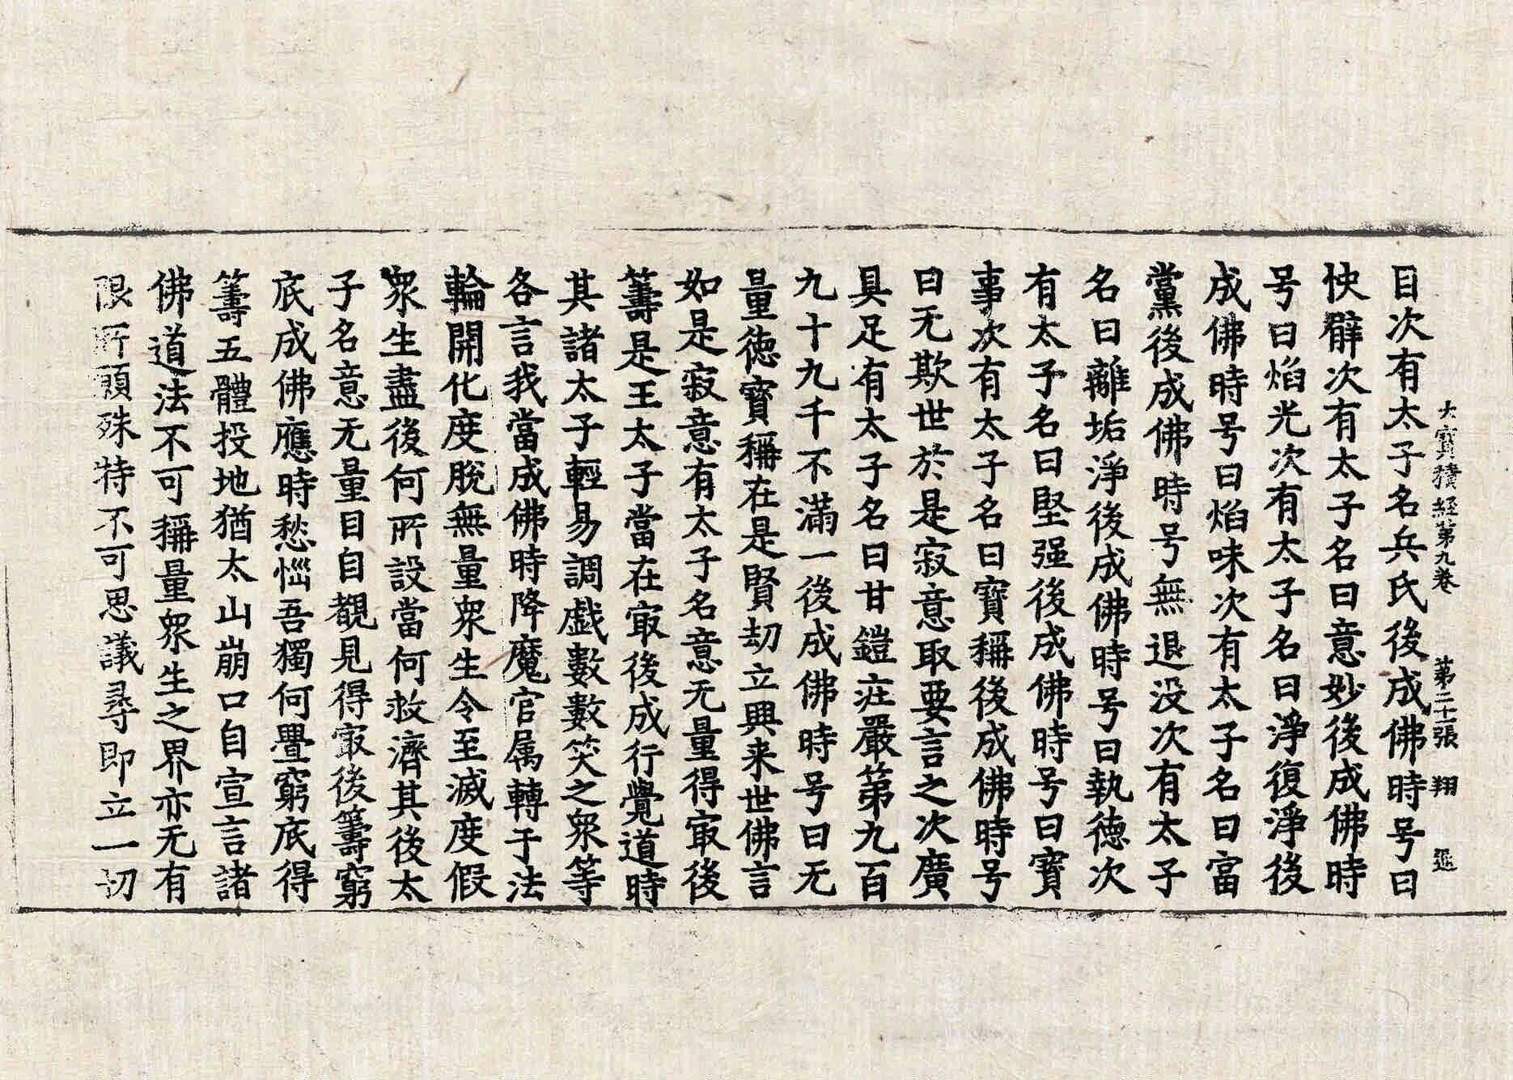 大寶積經第九卷 第二十一張 翔
目次有太子名兵氏後成佛時号曰
快臂次有太子名曰意妙後成佛時
号曰焰光次有太子名曰淨復淨後
成佛時号曰焰味次有太子名曰富
黨後成佛時号無退没次有太子
名曰離垢淨後成佛時号曰執德次
有太子名曰堅强後成佛時号曰寶
事次有太子名曰寶稱後成佛時号
曰无欺世於是寂意取要言之次廣
具足有太子名曰甘鎧庄嚴第九百
九十九千不滿一後成佛時号曰无
量德寶稱在是賢劫立興来世佛言
如是寂意有太子名意无量得冣後
籌是王太子當在冣後成行覺道時
其諸太子輕易調戲數數笑之衆等
各言我當成佛時降魔官属轉于法
輪開化度脫無量衆生令至滅度假
衆生盡後何所設當何救濟其後太
子名意无量目自覩見得冣後籌窮
底成佛應時愁惱吾獨何舋窮底得
籌五體投地猶太山崩口自宣言諸
佛道法不可稱量衆生之界亦无有
限所願殊特不可思議尋即立一切